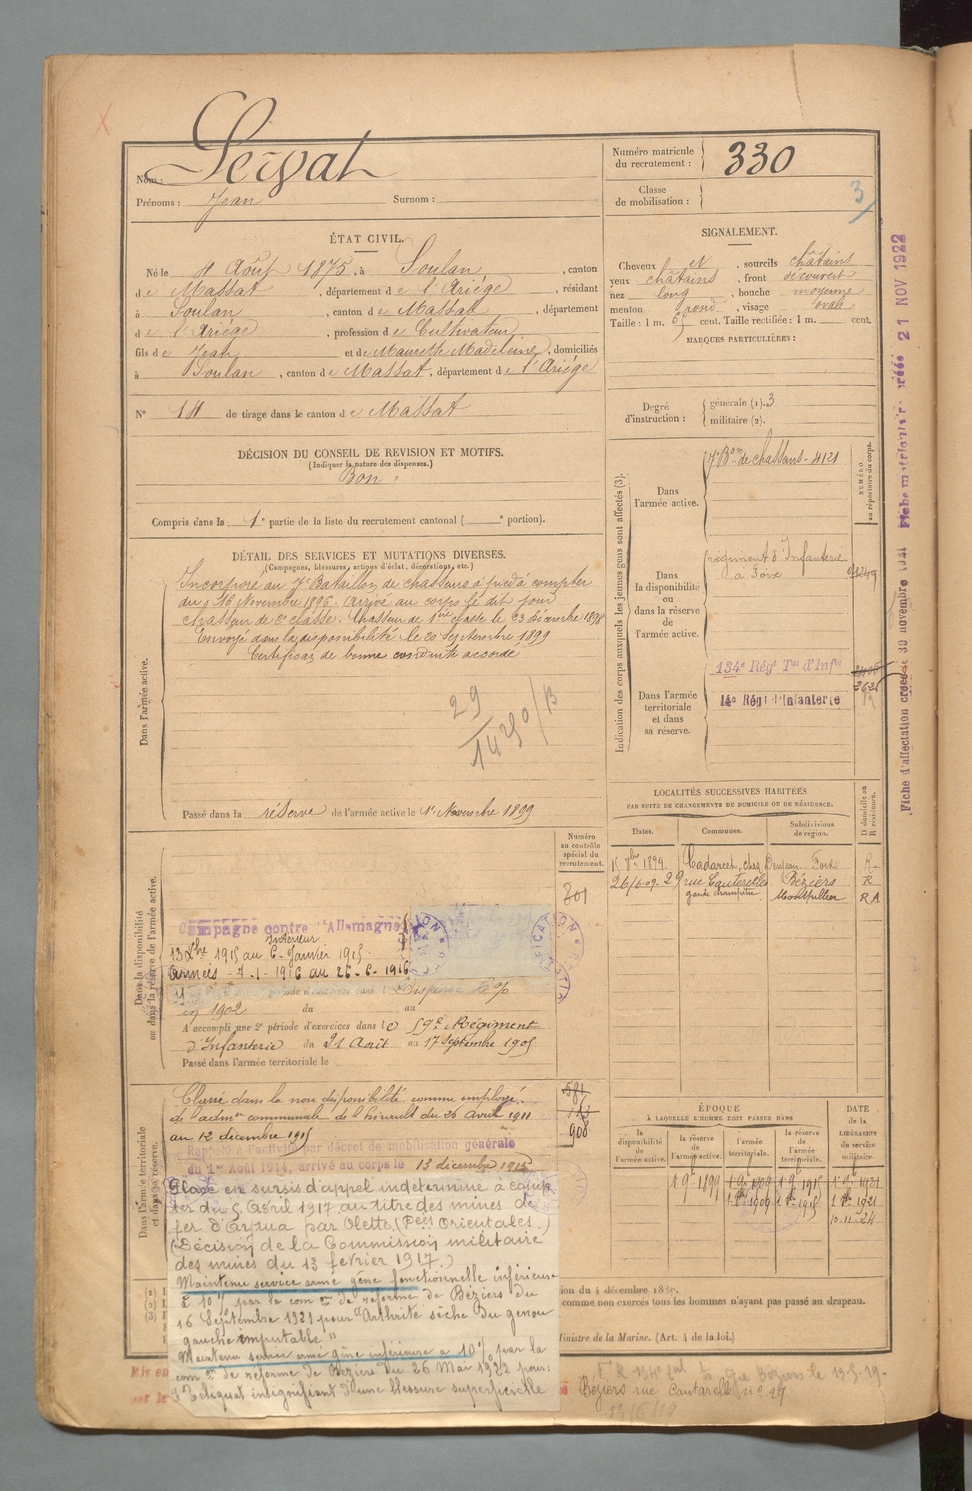 Servat
Nom :
Prénoms : Jean Surnom :
Numéro matricule du recrutement : 330
Classe de mobilisation :
3
ÉTAT CIVIL.
Né le 4 Août 1875, à Soulan, canton
de Massat, département de l'Ariège, résidant
à Soulan, canton de Massat, département
de l'Ariège, profession de Cultivateur
fils de Jean et de Maurette Madeleine, domiciliés
à Soulan, canton de Massat, département de l'Ariège
N° 14 de tirage dans le canton de Massat
DÉCISION DU CONSEIL DE REVISION ET MOTIFS.
(Indiquer la nature des dispenses.)
Bon
Compris dans la 1e partie de la liste du recrutement cantonal ( e portion).
SIGNALEMENT.
Cheveux et, sourcils châtains
yeux châtains, front découvert
nez long, bouche moyenne
menton rond, visage ovale
Taille : 1 m. 65 cent. Taille rectifiée : 1 m. cent.
MARQUES PARTICULIÈRES :
Degré d'instruction :
générale (1). 3
militaire (2).
DÉTAIL DES SERVICES ET MUTATIONS DIVERSES.
(Campagnes, blessures, actions d'éclat, décorations, etc.)
Dans l'armée active.
Incorporé au 7e Bataillon de chasseurs à pied à compter
du 16 Novembre 1896. Arrivé au corps le dit jour
chasseur de 2e classe. Chasseur de 1ère classe le 23 décembre 1898
Envoyé dans la disponibilité le 20 Septembre 1899
Certificat de bonne conduite accordé
29
Passé dans la réserve de l'armée active le 1er Novembre 1899
Indication des corps auxquels les jeunes gens sont affectés (3).
NUMÉRO au répertoire du corps.
Dans l'armée active.
7e Bon de chasseurs - 4121
Dans la disponibilité ou dans la réserve de l'armée active.
régiment d'Infanterie
à Foix
Dans l'armée territoriale et dans sa réserve.
134e Régt Tal d'Infie
14e Régt d'Infanterie
LOCALITÉS SUCCESSIVES HABITÉES
PAR SUITE DE CHANGEMENTS DE DOMICILE OU DE RÉSIDENCE.
D domicile ou R résidence.
Dates. Communes. Subdivisions de région.
1899. Cadarcet, chez Foix R.
26/6.09. 29 rue Cantarelles Béziers R
garde champêtre Montpellier RA
Numéro au contrôle spécial du recrutement.
Dans la disponibilité ou dans la réserve de l'armée active.
801
Campagne contre l'Allemagne
Intérieur
13 Xbre 1915 au 6 - Janvier 1915
Armées - 7-1-1916 au 26-6-1916
période d'exercices dans l Dispensé
en 1902 du au
A accompli une 2e période d'exercices dans le 59e Régiment
d'Infanterie du 21 Août au 17 Septembre 1905
Passé dans l'armée territoriale le
Dans l'armée territoriale et dans sa réserve.
Classé dans la non disponibilité comme employé
de l'admon communale de l'Hérault du 26 avril 1911
au 12 décembre 1915
581
908
Rappelé à l'activité par décret de mobilisation générale
du 1er Août 1914, arrivé au corps le 13 décembre 1915
Placé en sursis d'appel indéterminé à comp
ter du 5 Avril 1917 au titre des mines de
fer d'Aytua par Olette (Pées Orientales.)
(Décision de la Commission militaire
des mines du 13 février 1917.)
Maintenu service armé gêne fonctionnelle inférieure
à 10% par la com on de réforme de Béziers du
16 Septembre 1921 pour "Arthrite sèche du genou
gauche imputable"
Maintenu service armé gêne inférieure à 10% par la
com on de réforme de Béziers du 26 Mai 1922 pour:
Reliquat insignifiant d'une blessure superficielle
ÉPOQUE
À LAQUELLE L'HOMME DOIT PASSER DANS
la disponibilité de l'armée active.
la réserve de l'armée active.
l'armée territoriale.
la réserve de l'armée territoriale.
DATE de la LIBÉRATION du service militaire.
1 9e 1899 1 9e 1909 1 9e 1915 1 9e 1921
10-11-24
ion du 4 décembre 1889.
comme non exercés tous les hommes n'ayant pas passé au drapeau.
Ministre de la Marine. (Art. 4 de la loi.)
Mis en
par le
Béziers rue Cantarelle n° 29
13/6/19
Fiche d'affectation créée le 30 novembre 1921 Fiche matriculaire créée 21 NOV 1922